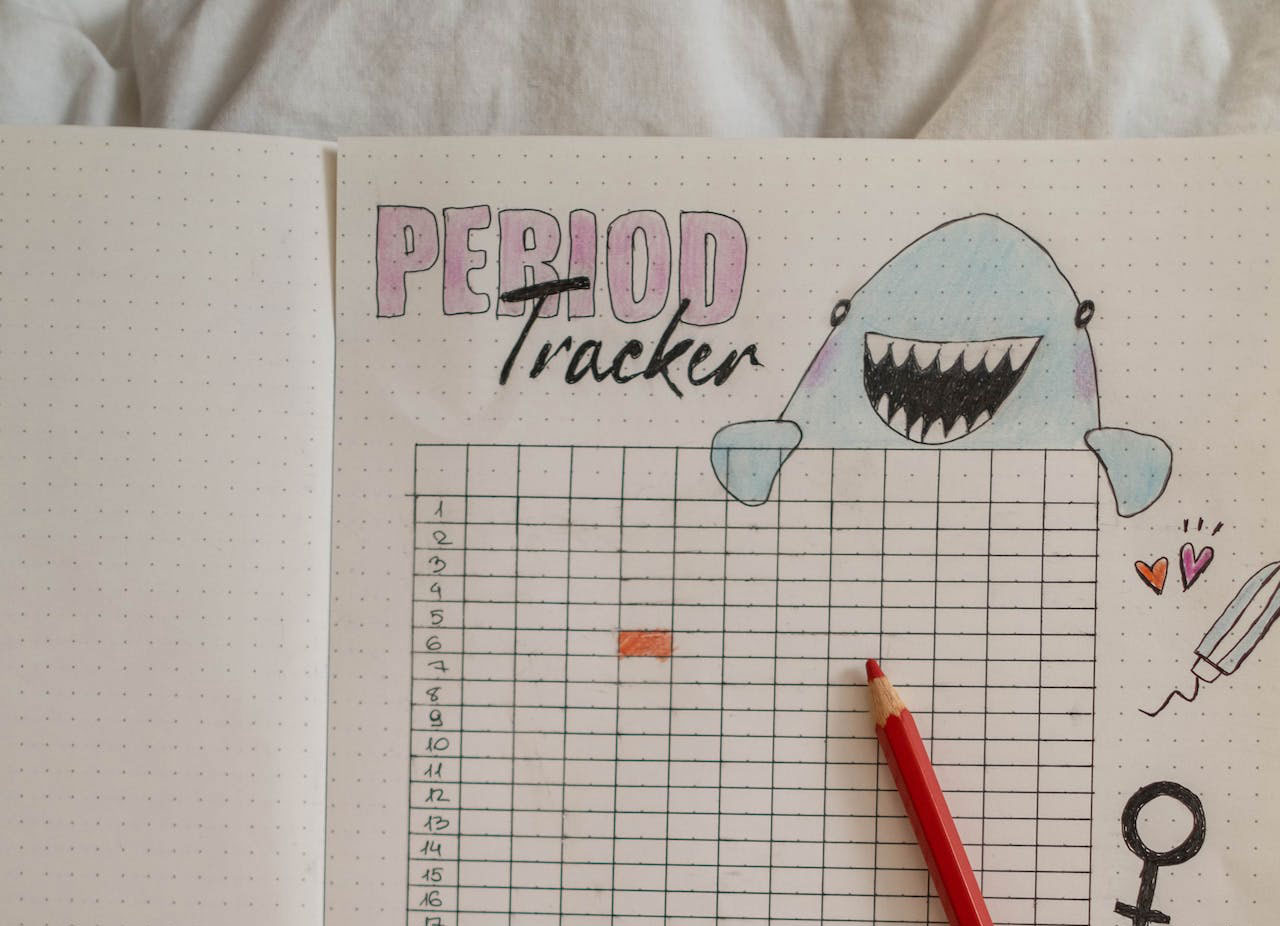 PERIOD
Tracker
1
2
3
4
5
6
7
8
9
10
11
12
13
14
15
16
17